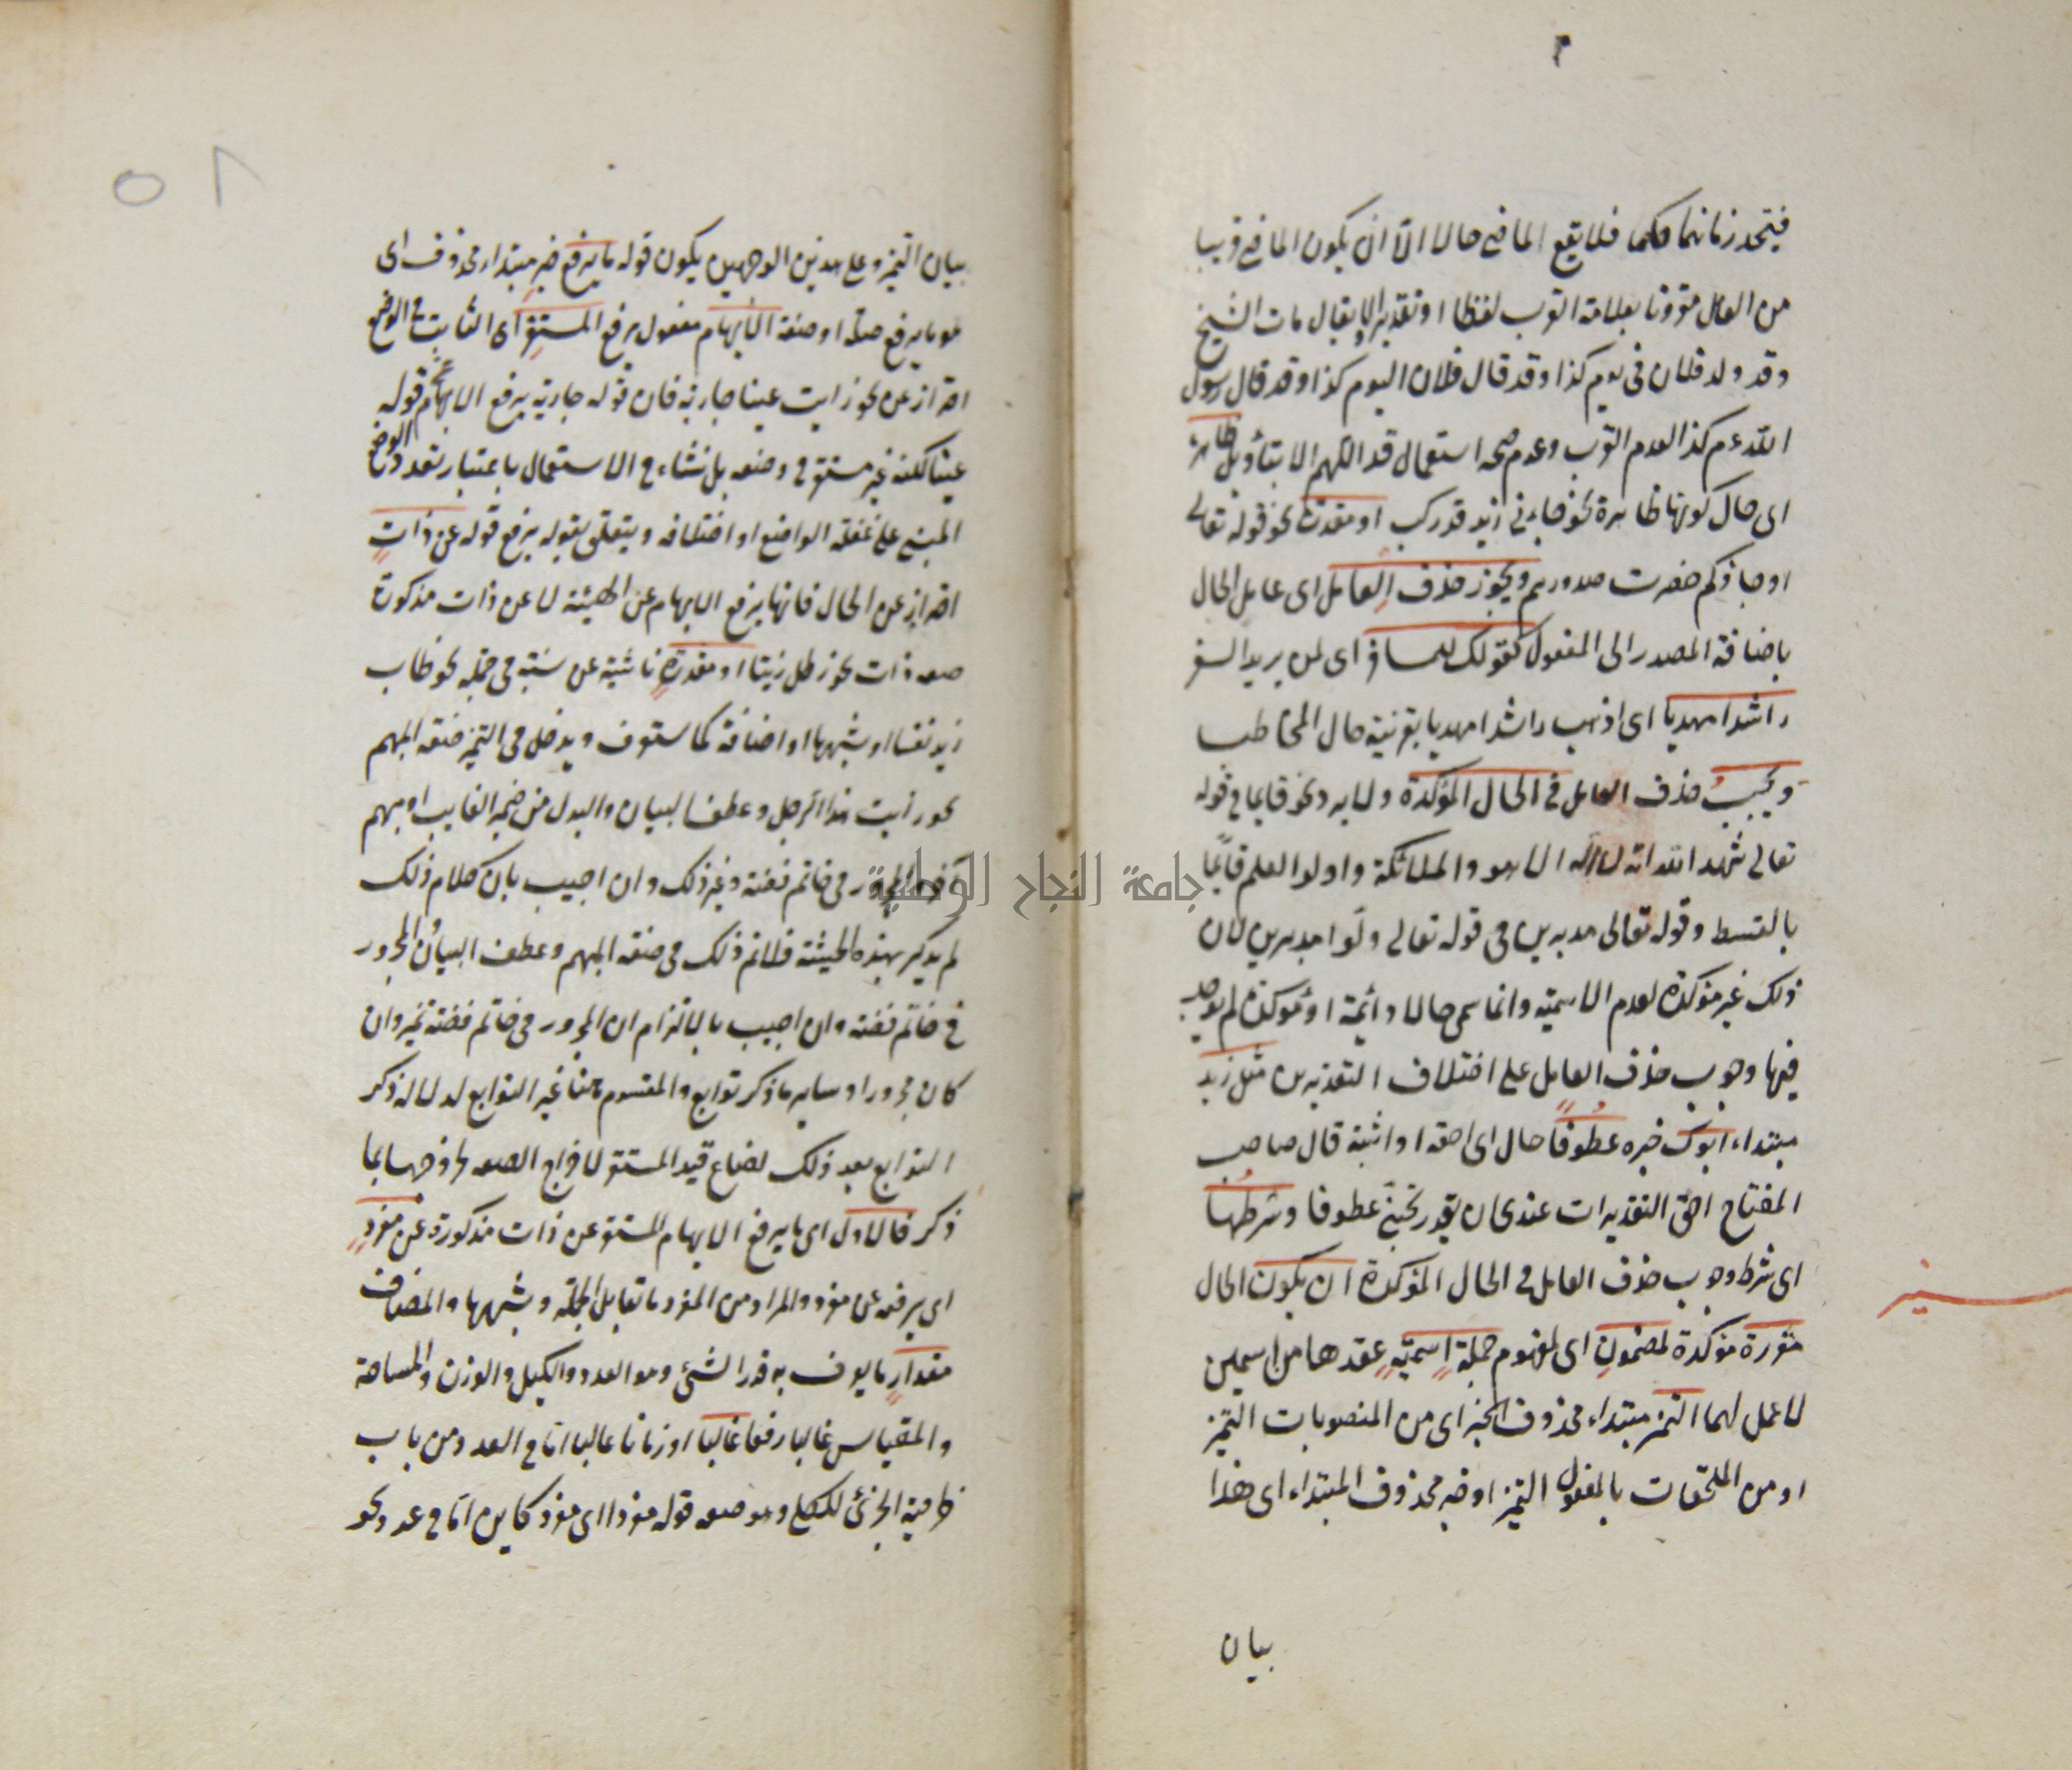 فيتحد زمانهما حكما فلا يقع الماضى حالا الا ان يكون الماضى قريبا
من العامل مقرونا بعلامة القرب لفظا او تقديرا لا يقال مات الشيخ
وقد ولد فلان فى يوم كذا وقد قال فلان اليوم كذا وقد قال رسول
الله عم كذا لعدم القرب وعدم صحة استعمال قد اللهم الا بتأويل ظاهرة
اى حال كونها ظاهرة نحو جاءنى زيد قد ركب او مقدرة نحو قوله تعالى
او جاؤكم حصرت صدورهم ويجوز حذف العامل اى عامل الحال
باضافة المصدر الى المفعول كقولك للمسافر اى لمن يريد السفر
راشدا مهديا اى اذهب راشدا مهديا بقرينة حال المخاطب
ويجب حذف العامل فى الحال المؤكدة ولا يرد نحو قايما فى قوله
تعالى شهد الله انه لا اله الا هو والملائكة واولوا العلم قائما
بالقسط وقوله تعالى مدبرين فى قوله تعالى ولوا مدبرين لان
ذلك غير مؤكدة لعدم الاسمية وانما سمى حالا دائمة او مؤكدة لم يوجب
فيها وجوب حذف العامل على اختلاف التقديرين مثل زيد
مبتداء ابوك خبره عطوفا حال اى احقه او اثبته قال صاحب
المفتاح احق التقديرات عندى ان يقدر يحنى عطوفا وشرطها
اى شرط وجوب حذف العامل فى الحال المؤكدة ان يكون الحال
مقررة مؤكدة لمضمون اى لمفهوم جملة اسمية عقدها من اسمين
لا عمل لهما التميز مبتداء محذوف الخبر اى من المنصوبات التميز
او من الملحقات بالمفعول التميز او خبر محذوف المبتداء اى هذا
بيان
٥٨
بيان التميز وعلى هذين الوجهين يكون قوله ما يرفع خبر مبتداء محذوف اى
هو ما يرفع صلة او صفة الابهام مفعول يرفع المستقر اى الثابت فى الوضع
احتراز عن نحو رايت عينا جارية فان قوله جارية يرفع الابهام عن قوله
عينا لكنه غير مستقر فى وضعه بل نشاء فى الاستعمال باعتبار تعدد الوضع
المبنى على غفلة الواضع او اختلافه ويتعلق بقوله يرفع قوله عن ذات
احتراز عن الحال فانها يرفع الابهام عن الهيئة لا عن ذات مذكورة
صفة ذات نحو رطل زيتا او مقدرة ناشية عن نسبة فى جملة نحو طاب
زيد نفسا او شبهها او اضافة كما ستعرف ويدخل فى التميز صفة المبهم
نحو رأيت هذا الرجل وعطف البيان والبدل من ضمير الغايب او مبهم
آخر والمجرور فى خاتم فضة وغير ذلك وان اجيب بان كلام ذلك
لم يذكر بهذه الحيثية فلا تم ذلك فى صفة المبهم وعطف البيان والمجرور
فى خاتم فضة وان اجيب بالتزام ان المجرور فى خاتم فضة تميز وان
كان مجرورا وساير ما ذكر توابع والمقسوم هنا غير التوابع لدلالة ذكر
التوابع بعد ذلك لضاع قيد المستقر لاخراج الصفة لخروجها بما
ذكر فالاول اى ما يرفع الابهام المستقر عن ذات مذكورة عن مفرد
اى يرفعه عن مفرد والمراد من المفرد ما تقابل الجملة وشبهها والمضاف
مقدار ما يعرف به قدر الشئ وهو العدد والكيل والوزن والمساحة
والمقياس غالبا رفعا غالبا او زمانا غالبا اما فى العدد من باب
ظرفية الجزئى للكلى وهو صفة قوله مفردا اى مفرد كاين اما فى عدد نحو
جامعة النجاح الوطنية